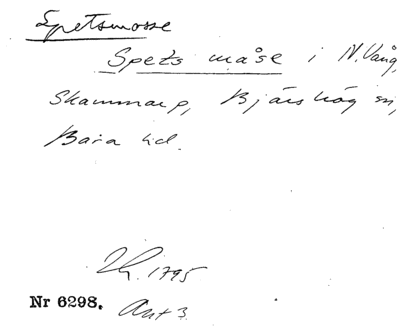 Spetsmosse
Spets måse i N. Vång,
Skammarp, Bjärshög sn,
Bara hd.
1795
Nr 6298. Akt 3